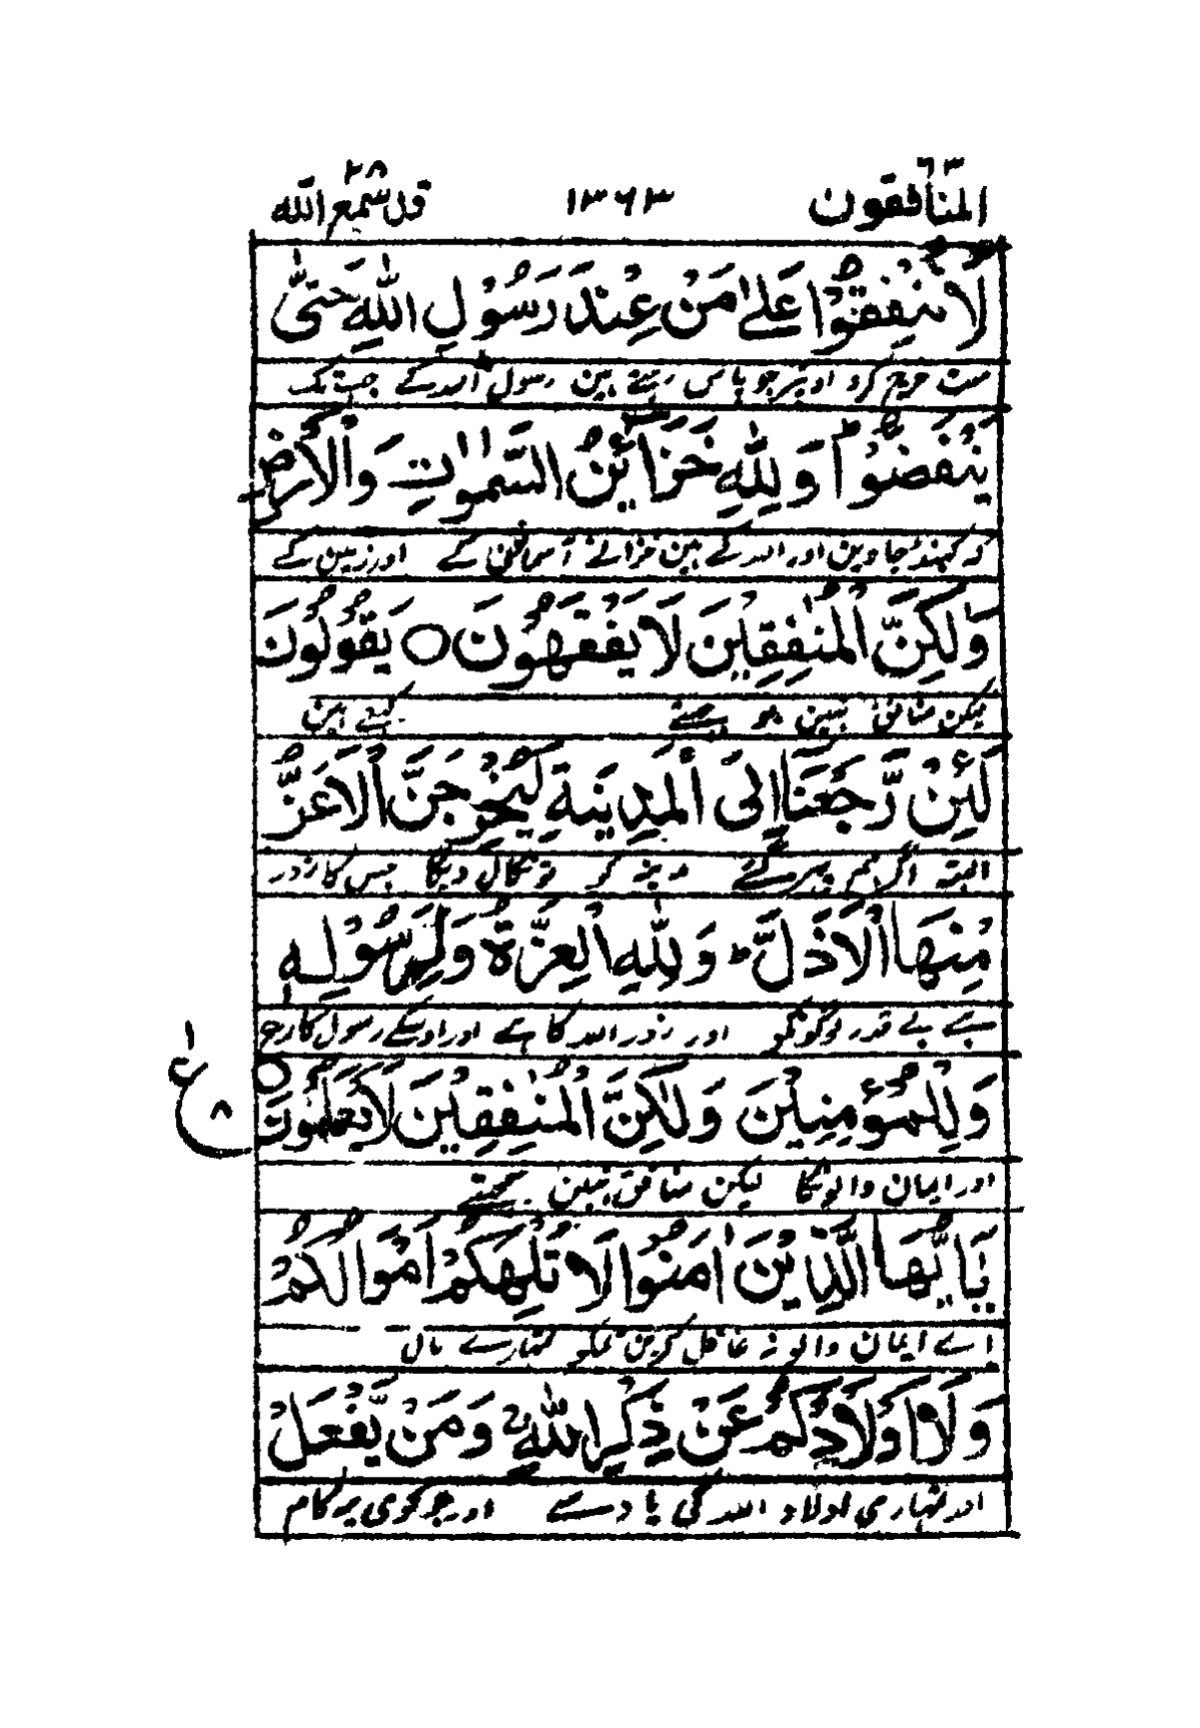 المنافقون ٦٣ ١٣٦٣ قد سمع الله ٢٨
لَا تُنْفِقُوْا عَلٰى مَنْ عِنْدَ رَسُوْلِ اللّٰهِ حَتّٰى
مت خرچ کرو اوپر جو پاس رہتے ہین رسول اللہ کے جب تک
يَنْفَضُّوْا ؕ وَلِلّٰهِ خَزَآئِنُ السَّمٰوٰتِ وَالْاَرْضِ
کہ کھنڈ جاوین اور اللہ کے ہین خزانے آسمانون کے اور زمین کے
وَلٰكِنَّ الْمُنٰفِقِيْنَ لَا يَفْقَهُوْنَ ○ يَقُوْلُوْنَ
لیکن منافق نہین بوجھتے کہتے ہین
لَئِنْ رَّجَعْنَآ اِلَى الْمَدِيْنَةِ لَيُخْرِجَنَّ الْاَعَزُّ
البتہ اگر ہم پھر گئے مدینہ کو تو نکال دیگا جس کا زور
مِنْهَا الْاَذَلَّ ؕ وَلِلّٰهِ الْعِزَّةُ وَلِرَسُوْلِهٖ
ہے بے قدر لوگونکو اور زور اللہ کا ہے اور اوسکے رسول کا
وَلِلْمُؤْمِنِيْنَ وَلٰكِنَّ الْمُنٰفِقِيْنَ لَا يَعْلَمُوْنَ ○
١ ع ٨
اور ایمان والونکا لیکن منافق نہین سمجھتے
يٰۤاَيُّهَا الَّذِيْنَ اٰمَنُوْا لَا تُلْهِكُمْ اَمْوَالُكُمْ
اے ایمان والو نہ غافل کرین تمکو تمہارے مال
وَلَآ اَوْلَادُكُمْ عَنْ ذِكْرِ اللّٰهِ ۚ وَمَنْ يَّفْعَلْ
اور تمہاری اولاد اللہ کی یاد سے اور جو کوی یہ کام